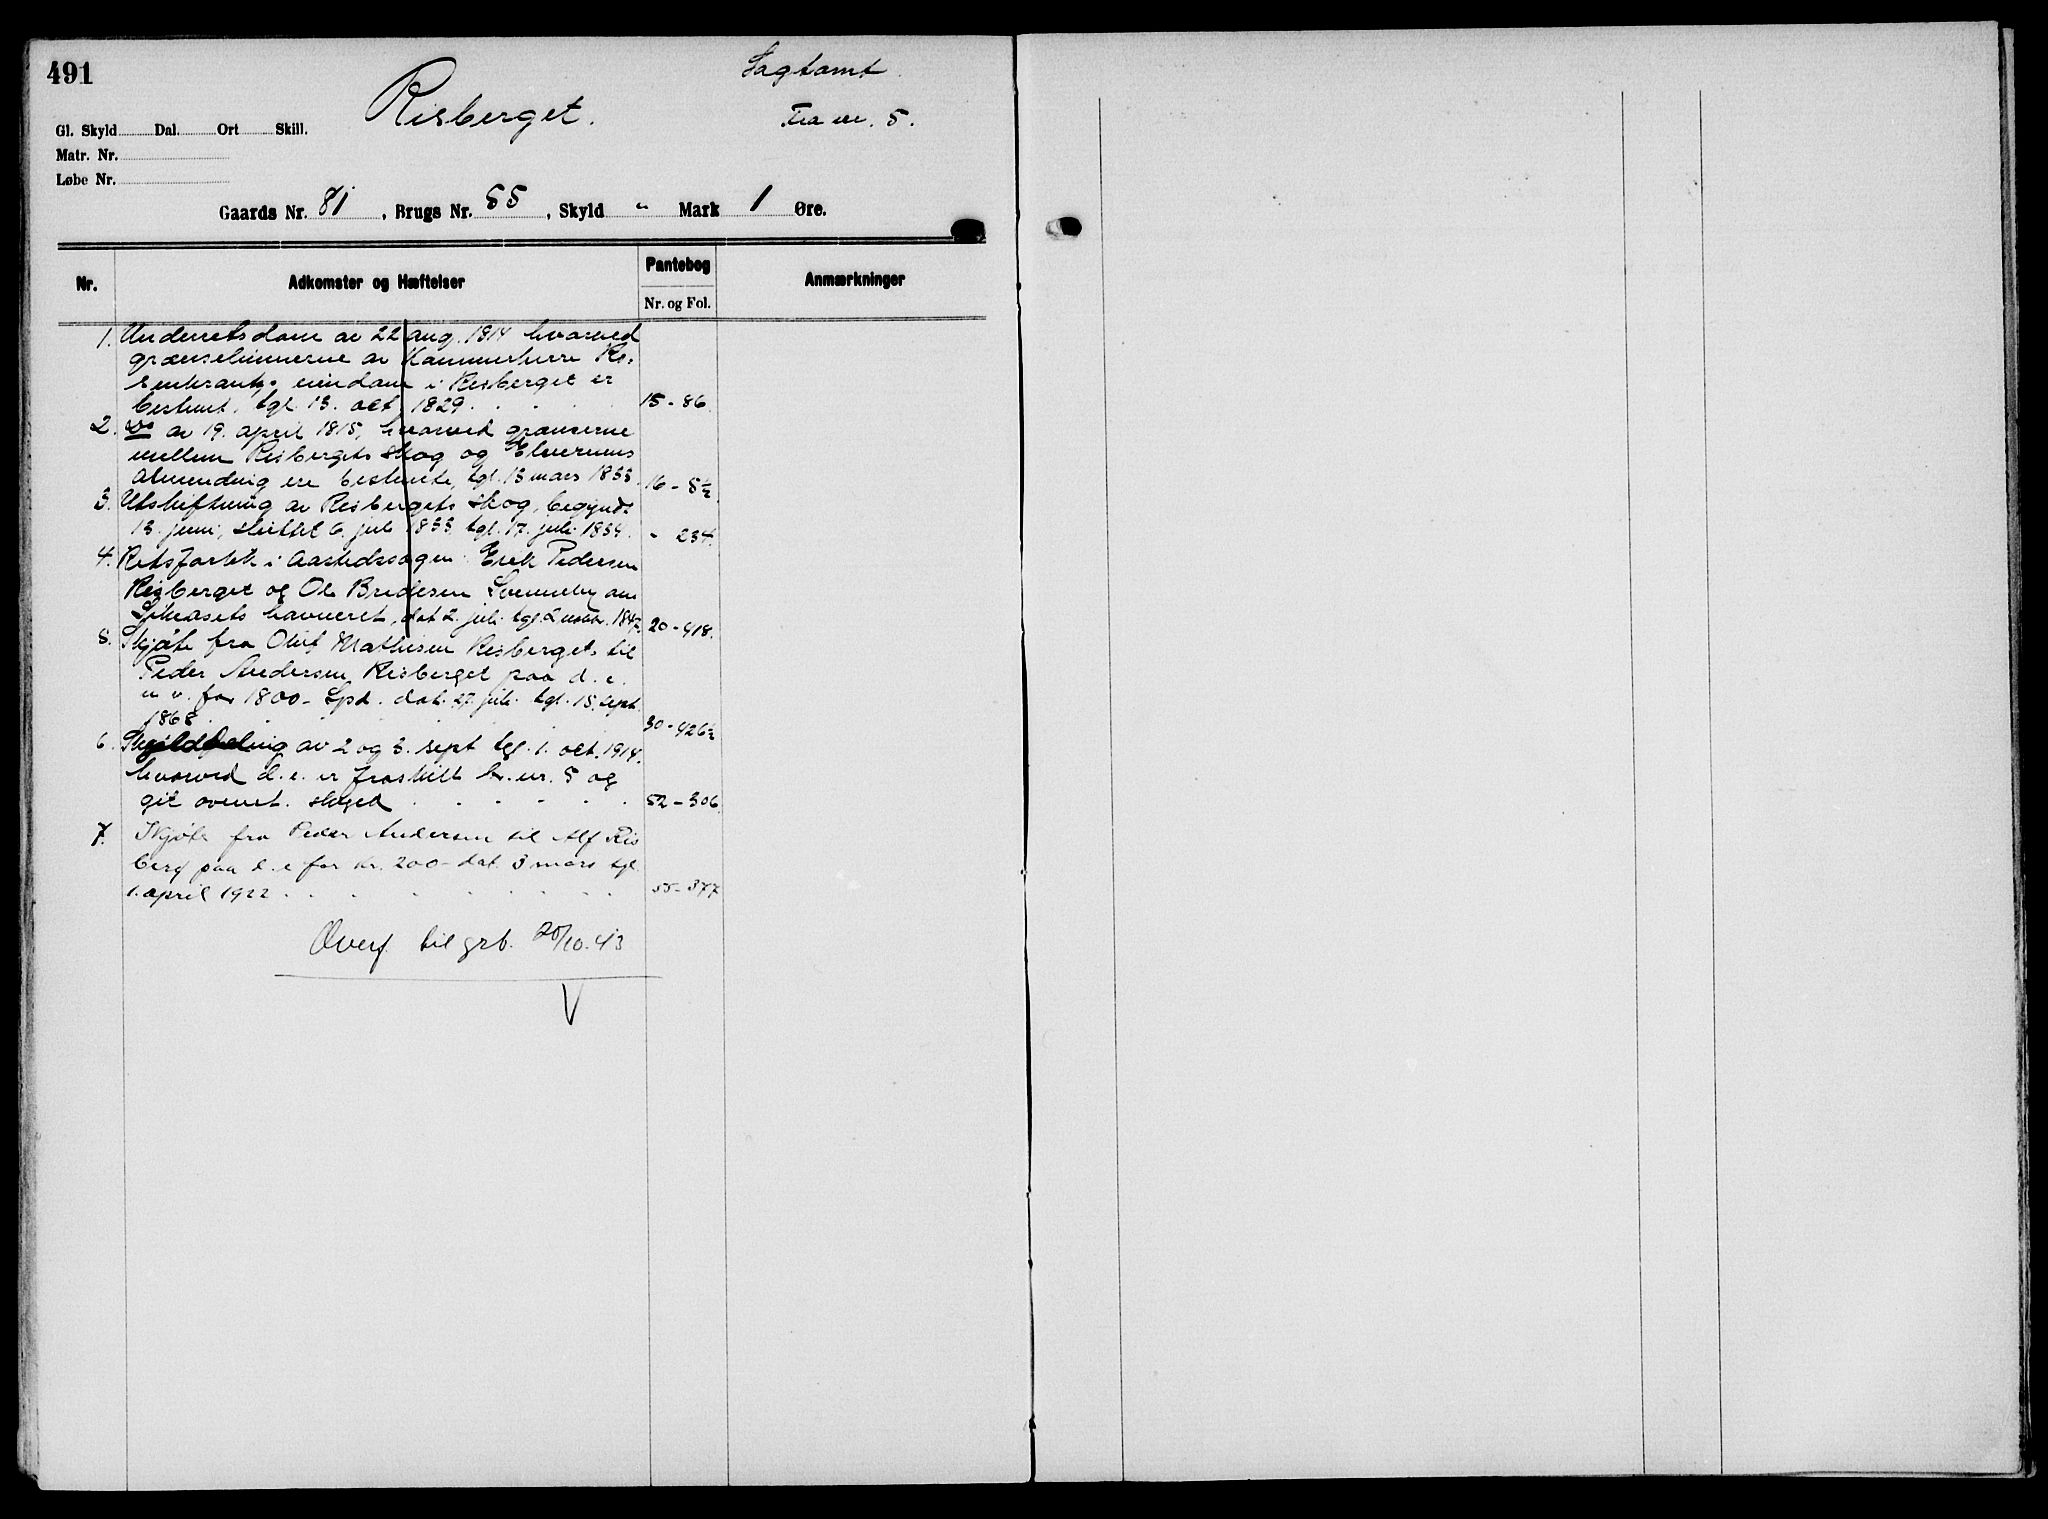 491
Risberget.
Sagtomt.
Fra nr. 5.
Gl. Skyld Dal. Ort Skill.
Matr. Nr.
Løbe Nr.
Gaards Nr. 81, Brugs Nr. 55, Skyld " Mark 1 Øre.
Nr. Adkomster og Hæftelser Pantebog Nr. og Fol. Anmærkninger
1. Underretsdom av 22 aug. 1814 hvorved
grænselinnerne av Kammerherre Ro-
senkrantz eiendom i Risberget er
bestemt, tgl. 13. okt. 1829. 15 - 86.
2. Do av 19. april 1815, hvorved grænserne
mellem Risbergets skog og Elverums
almending er bestemte, tgl. 13 mars 1833. 16 - 8½
3. Utskiftning av Risbergets skog, begyndt
13. juni, sluttet 6. juli 1833 tgl. 17. juli 1834. " 234.
4. Retsforlik i aastedssagen Erik Pedersen
Risberget og Ole Bredesen Svenneby om
havneret, dat 2. juli tgl. 2 1847. 20 - 418.
5. Skjøte fra Oluf Mathisen Risberget til
Peder Andersen Risberget paa d. e.
u v. for 1800 - Spd. dat. 27 juli tgl. 15. sept.
1868 30 - 426½
6. Skylddeling av 2 og 3. sept tgl. 1. okt. 1914.
hvorved d. e. er fraskilt br. nr. 5 og
git ovennt. skyld 52 - 306.
7. Skjøte fra Peder Andersen til Alf Ris
berg paa d. e for kr. 200 - dat. 3 mars tgl
1. april 1922 55 - 377
Overf. til grb. 20/10. 43
V